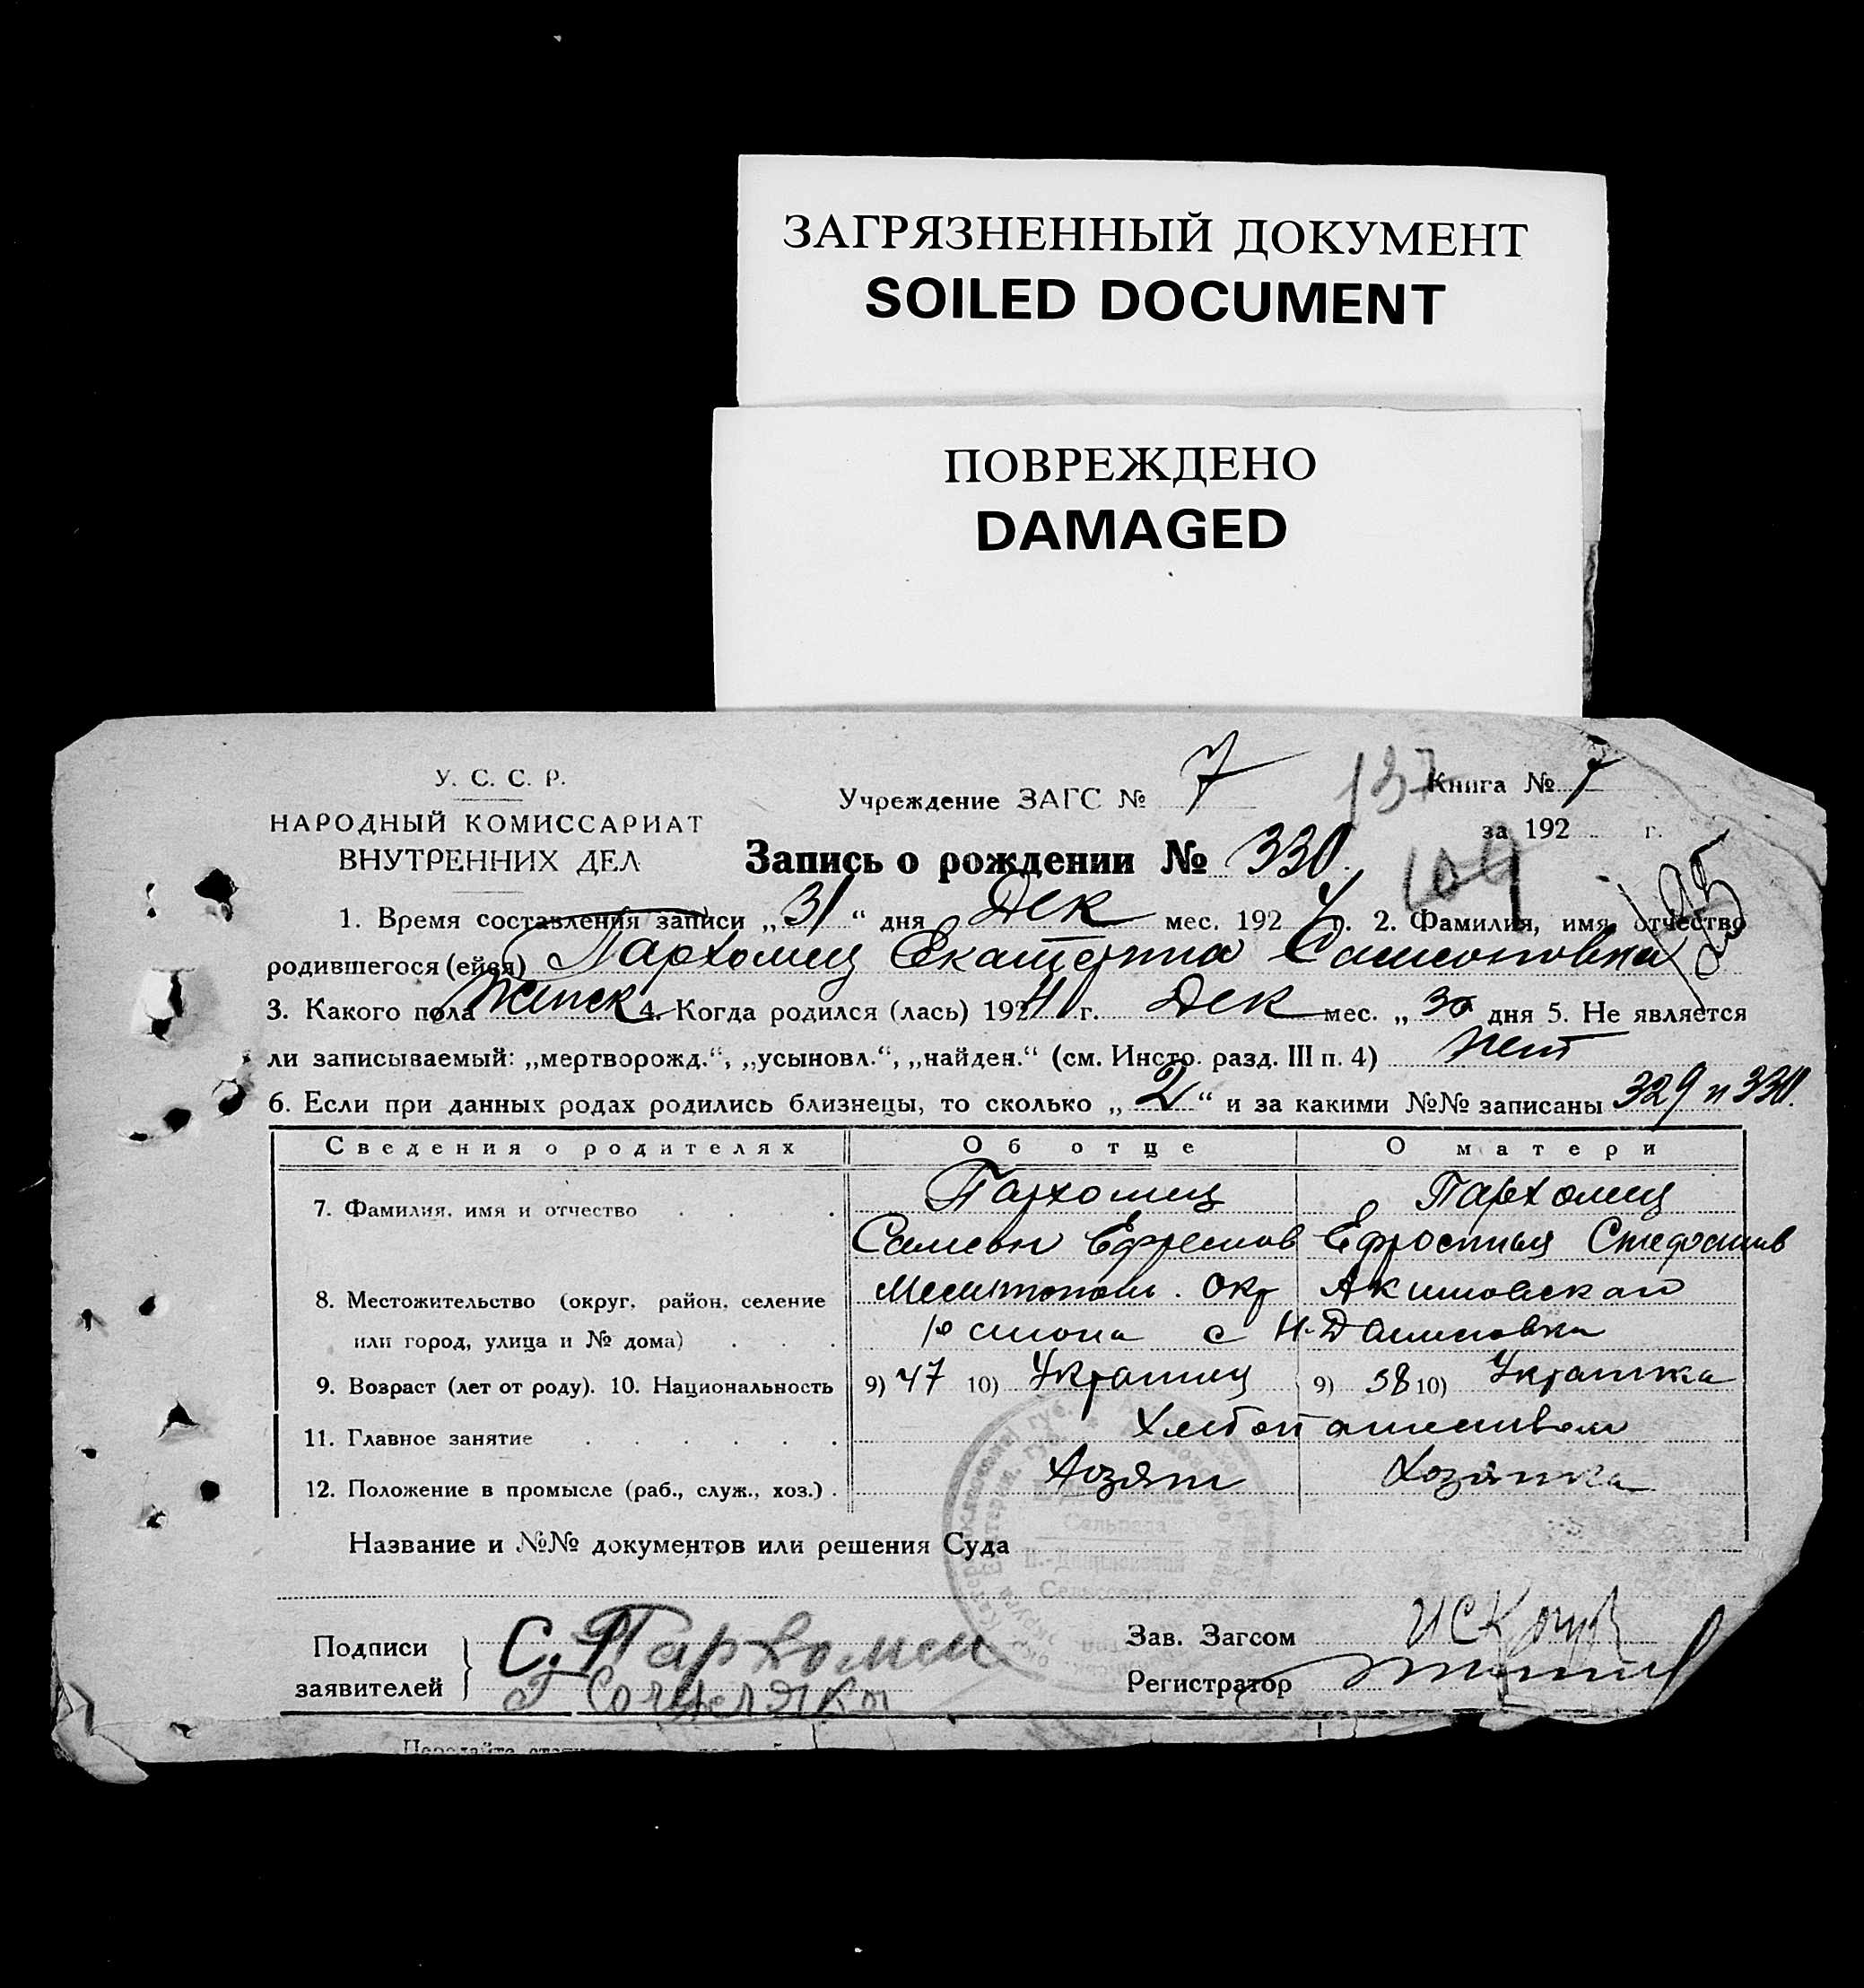 ЗАГРЯЗНЕННЫЙ ДОКУМЕНТ
SOILED DOCUMENT
ПОВРЕЖДЕНО
DAMAGED
У. С. С. Р.
НАРОДНЫЙ КОМИССАРИАТ
ВНУТРЕННИХ ДЕЛ
Учреждение ЗАГС № 7
137
Книга № 7
за 192 г.
Запись о рождении № 330
109
1. Время составления записи „31“ дня Дек мес. 1924 г. 2. Фамилия, имя, отчество
родившегося (ейся) Пархомец Екатерина Самсоновна
3. Какого пола Женск 4. Когда родился (лась) 1924 г. Дек мес. „30 дня 5. Не является
ли записываемый: „мертворожд.“, „усыновл.“, „найден.“ (см. Инстр. разд. III п. 4) Нет
6. Если при данных родах родились близнецы, то сколько „2“ и за какими №№ записаны 329 и 330.
Сведения о родителях Об отце О матери
7. Фамилия, имя и отчество Пархомец Пархомец
Самсон Ефремов Ефросиния
8. Местожительство (округ, район, селение Мелитопол. Окр Акимовского
или город, улица и № дома) района с Н-Даниловка
9. Возраст (лет от роду). 10. Национальность 9) 47 10) Украинец 9) 38 10) Украинка
11. Главное занятие Хлебопашеством
12. Положение в промысле (раб., служ., хоз.) Хозяин Хозяйка
Название и №№ документов или решения Суда
Сельрада
Н.-Даниловский
Сельсовет
Подписи
заявителей
С. Пархомец
Зав. Загсом
Регистратор